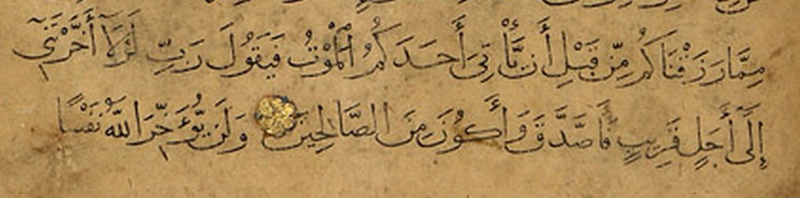 مِمَّا رَزَقْنَاكُمْ مِّن قَبْلِ أَن يَأْتِيَ أَحَدَكُمُ الْمَوْتُ فَيَقُولَ رَبِّ لَوْلَا أَخَّرْتَنِي
إِلَى أَجَلٍ قَرِيبٍ فَأَصَّدَّقَ وَأَكُونَ مِنَ الصَّالِحِينَ وَلَن يُؤَخِّرَ اللَّهُ نَفْسًا